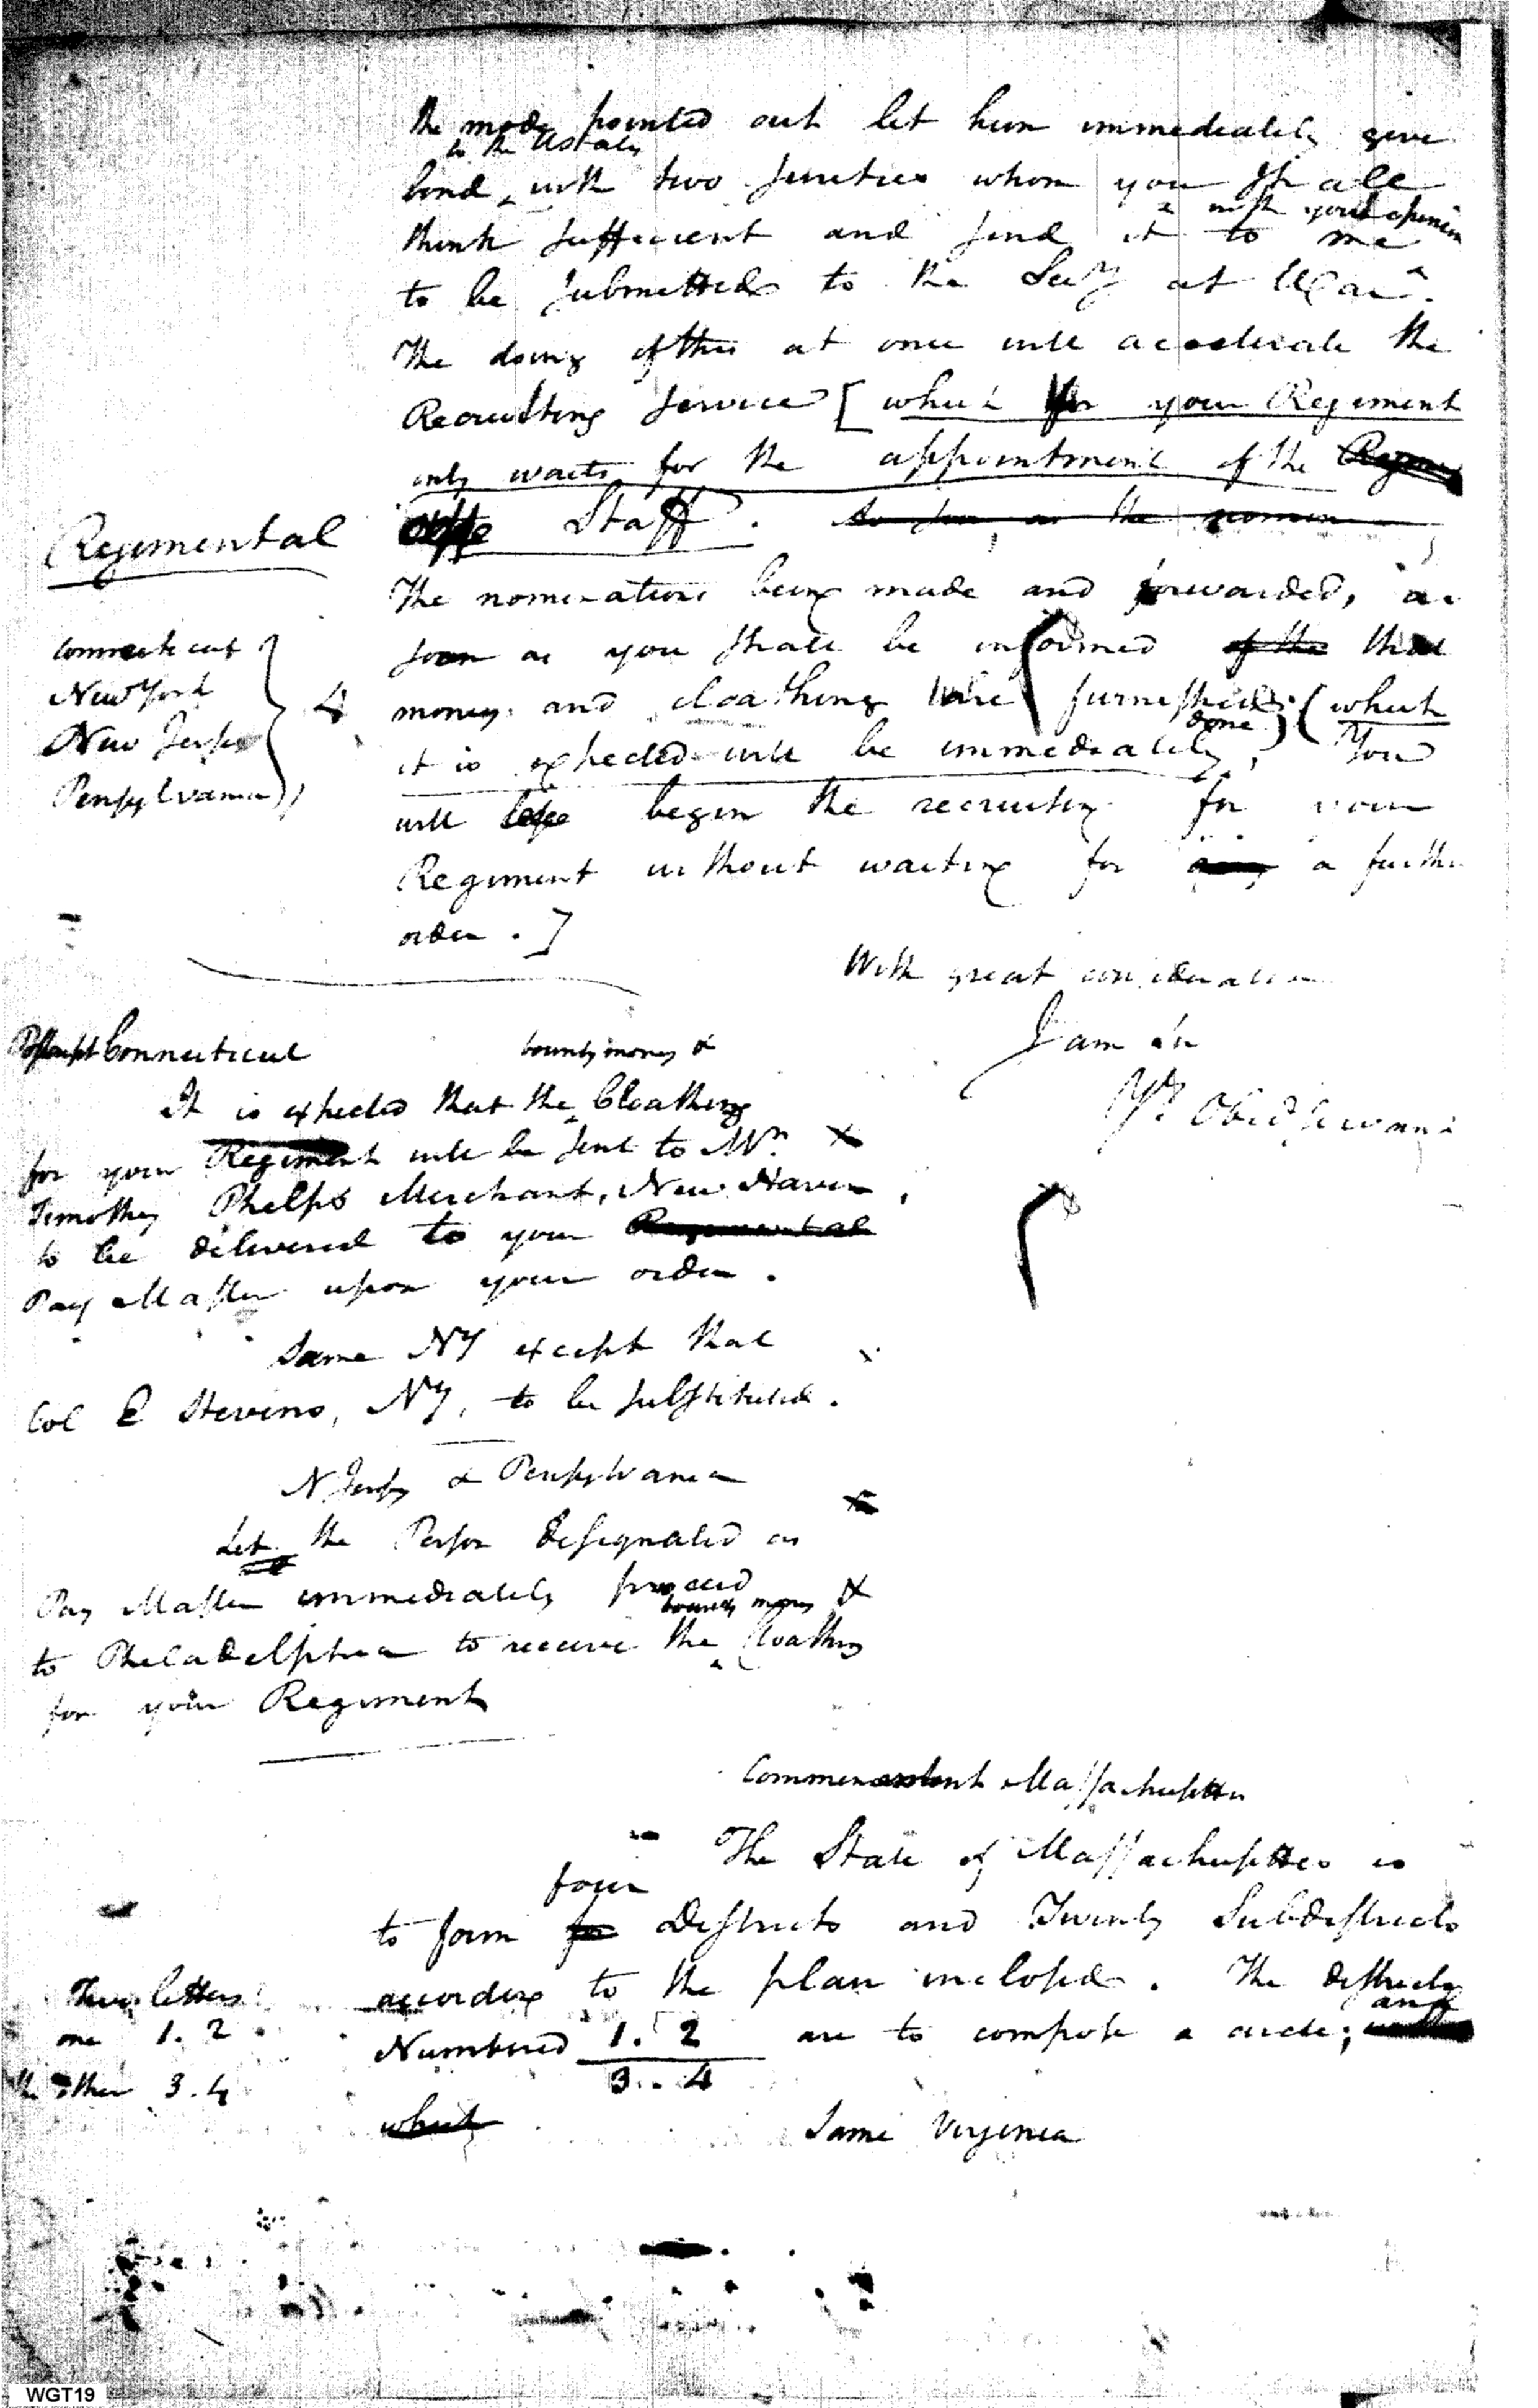 the mode pointed out let him immediately give
to the UStates
bond, with two sureties whom you shall
& with your opinion
think sufficient and send it to me
to be submitted to the Secy at War.
The doing of this at once will accelerate the
Recruiting service [which for your Regiment
only waits for the appointment of the
Regimental
Staff. so soon as the nomin
The nominations being made and forwarded, as
Connecticut
New York
New Jersey
Pensylvania
soon as you shall be informed of the that
money and cloathing are furnished; (which
done
it is expected will be immediately) You
will begin the recruiting for your
Regiment without waiting for any a further
order.]
With great consideration
I am &c
Yr. Obed servant
Postscript Connecticut
bounty money &
It is expected that the Cloathing
for your Regiment will be sent to Mr.
Timothy Phelps Merchant, New Haven,
to be delivered to your Regimental
Pay Master upon your order.
Same NY except that
Col E Stevens, NY, to be substituted.
N Jersey & Pensylvania
Let the Person designated as
Pay Master immediately proceed
bounty money &
to Philadelphia to receive the Cloathing
for your Regiment
Commencement Massachusettes
The State of Massachusettes is
four
to form for Districts and Twenty Subdistricts
according to the plan inclosed. The districts
and
Numbered 1. 2 are to compose a circle;
3. . 4
which
Two letters
one 1. 2
the other 3. 4
Same Virginia
WGT19